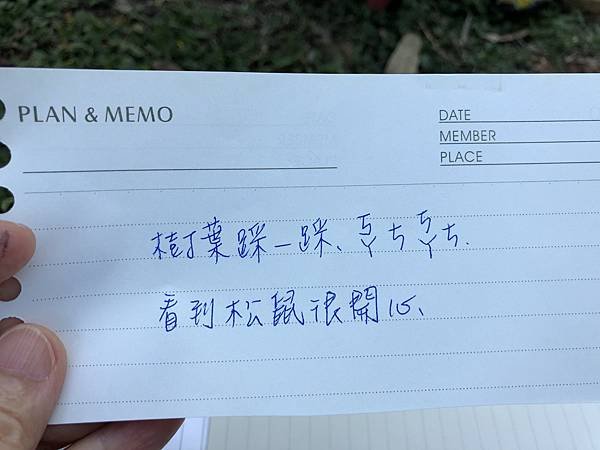 PLAN & MEMO
DATE
MEMBER
PLACE
樹葉踩一踩、ㄎㄚㄘㄎㄚㄘ.
看到松鼠很開心、